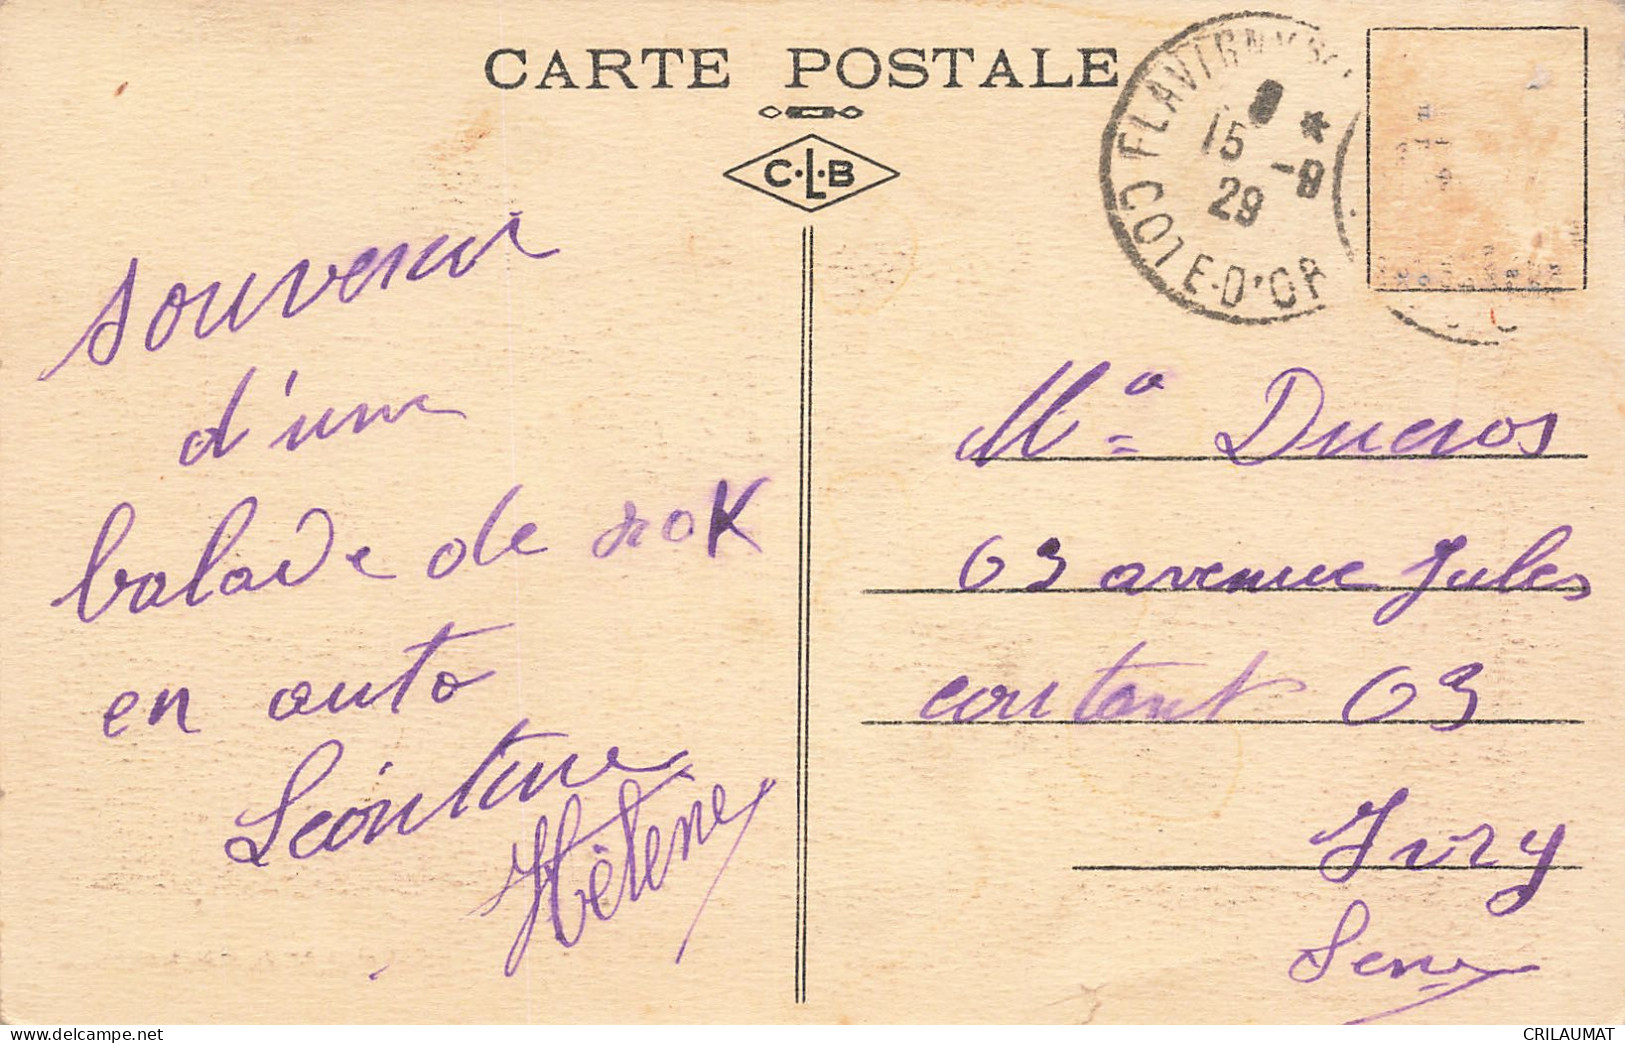 CARTE POSTALE
C.L.B
FLAVIGNY
15 -9
29
COTE-D'OR
souvenir
d'une
balade de nok
en auto
Léontine
Hélène
Mª Ducros
63 avenue Jules
contant 63
Ivry
Seine
www.delcampe.net
CRILAUMAT